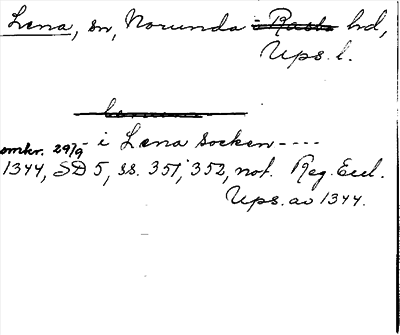 Lena, sn, Norunda hd,
Ups. l.
- i Lena socken ----
omkr. 29/9
1344, SD 5, ss. 351, 352, not. Reg. Eccl.
Ups. av 1344.